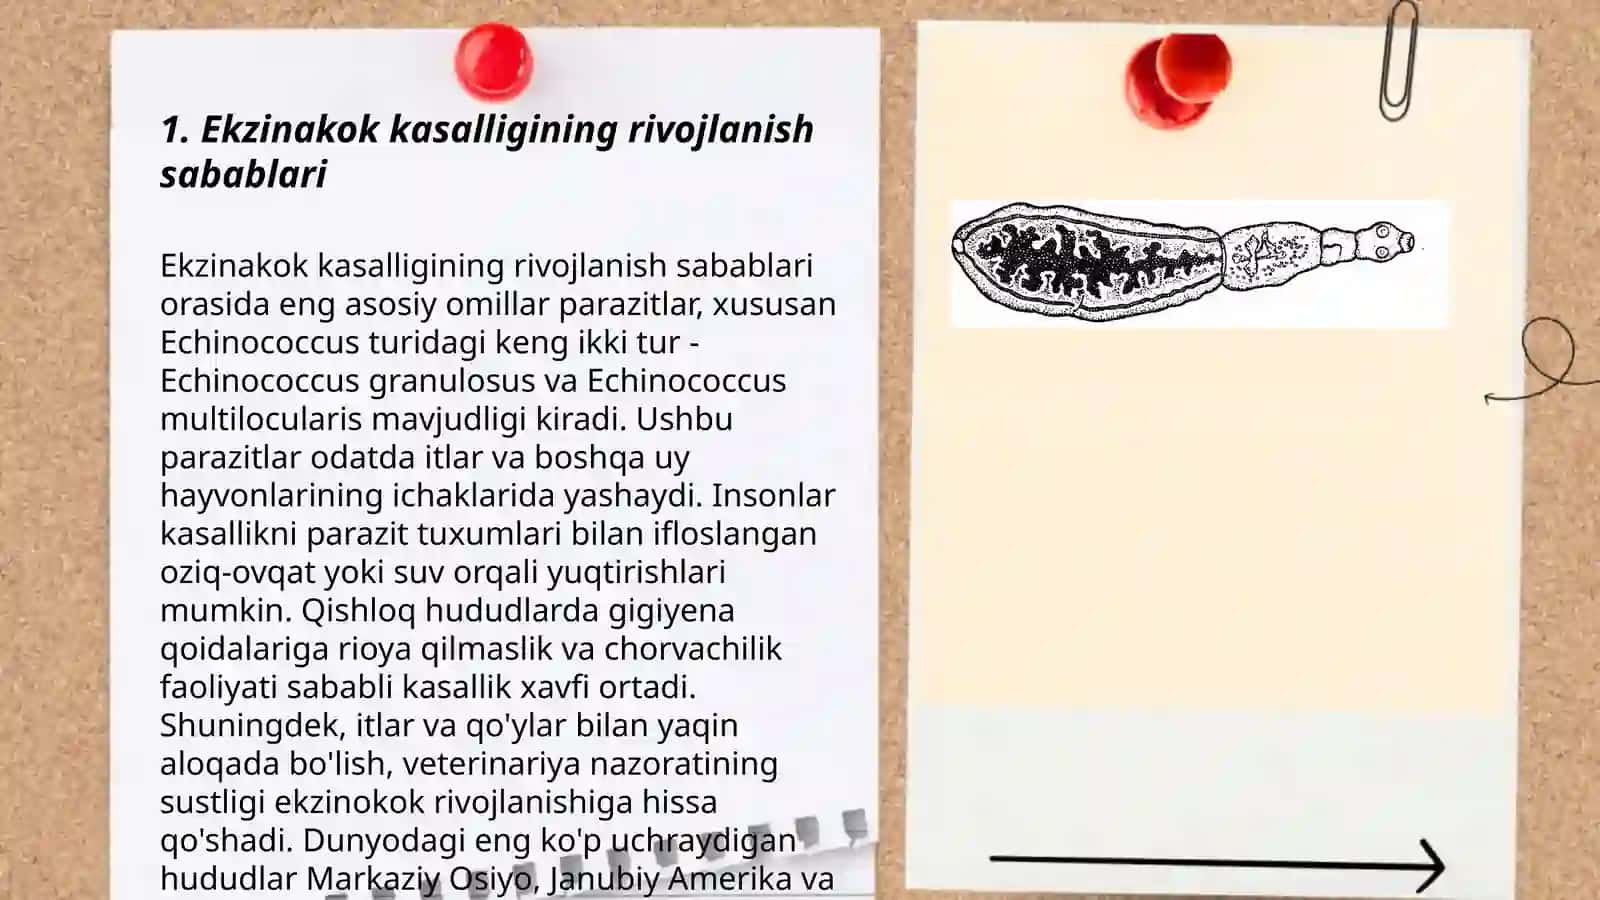 1. Ekzinakok kasalligining rivojlanish
sabablari
Ekzinakok kasalligining rivojlanish sabablari
orasida eng asosiy omillar parazitlar, xususan
Echinococcus turidagi keng ikki tur -
Echinococcus granulosus va Echinococcus
multilocularis mavjudligi kiradi. Ushbu
parazitlar odatda itlar va boshqa uy
hayvonlarining ichaklarida yashaydi. Insonlar
kasallikni parazit tuxumlari bilan ifloslangan
oziq-ovqat yoki suv orqali yuqtirishlari
mumkin. Qishloq hududlarda gigiyena
qoidalariga rioya qilmaslik va chorvachilik
faoliyati sababli kasallik xavfi ortadi.
Shuningdek, itlar va qo'ylar bilan yaqin
aloqada bo'lish, veterinariya nazoratining
sustligi ekzinokok rivojlanishiga hissa
qo'shadi. Dunyodagi eng ko'p uchraydigan
hududlar Markaziy Osiyo, Janubiy Amerika va